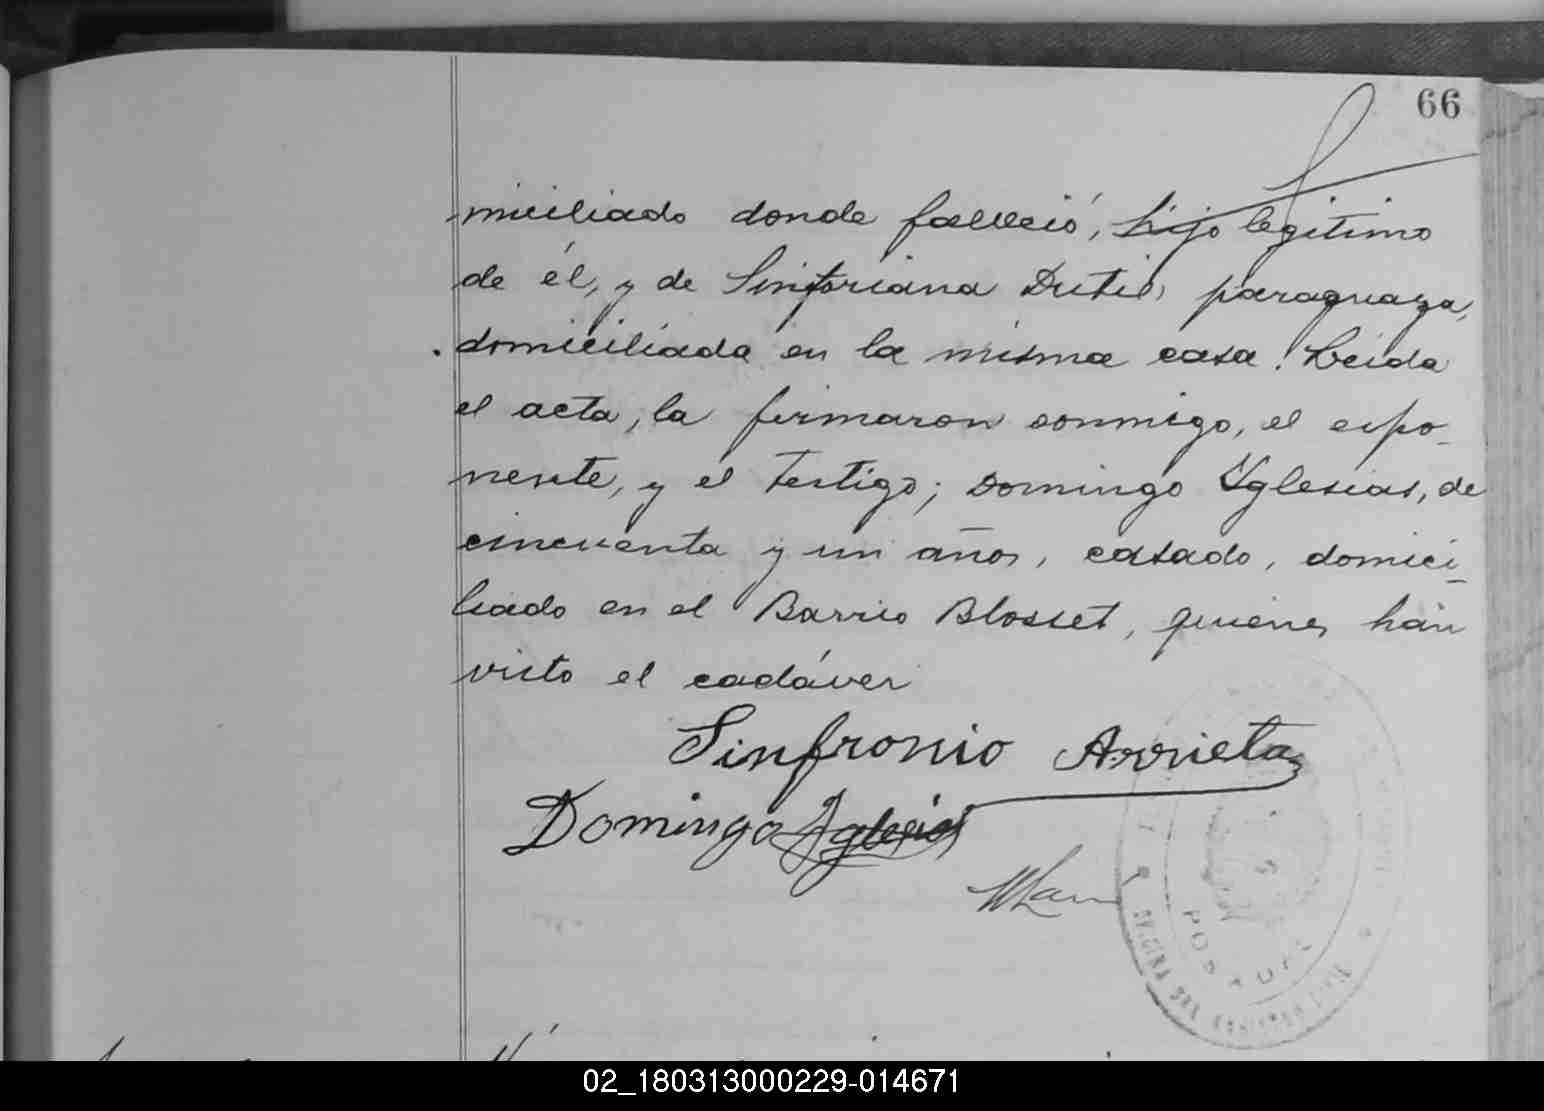 66
miciliado donde falleció, hijo legítimo
de él, y de Sinforiana Dutil, paraguaya,
domiciliada en la misma casa. Leida
el acta, la firmaron conmigo, el expo-
nente, y el testigo; Domingo Yglesias, de
cincuenta y un años, casado, domici-
liado en el Barrio Blosset, quienes hán
visto el cadáver
Sinfronio Arrieta
Domingo Yglesias
POSADAS
OFICINA DEL REGISTRO CIVIL
02_180313000229-014671